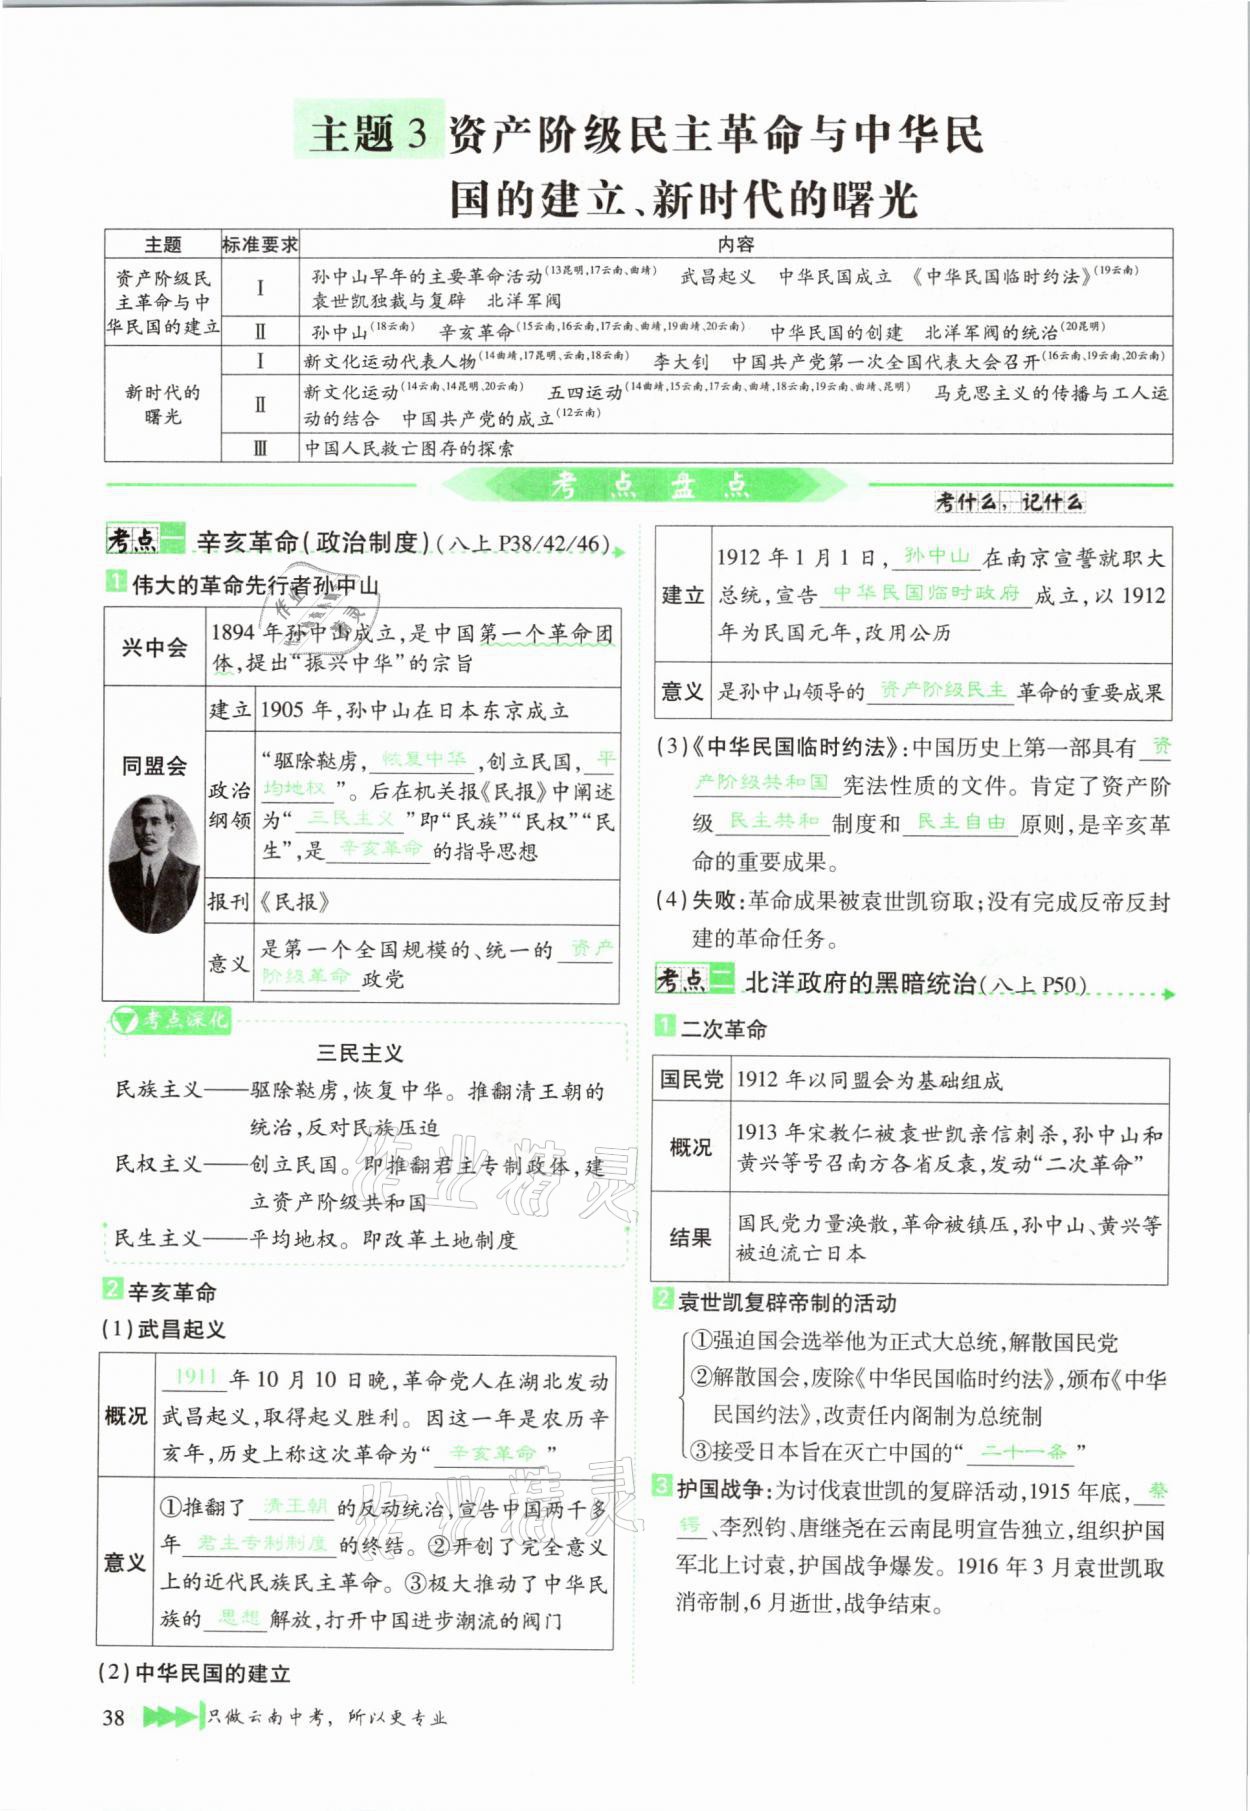 主题3 资产阶级民主革命与中华民
国的建立、新时代的曙光
主题 标准要求 内容
资产阶级民主革命与中华民国的建立
Ⅰ 孙中山早年的主要革命活动(13昆明,17云南、曲靖) 武昌起义 中华民国成立 《中华民国临时约法》(19云南)
袁世凯独裁与复辟 北洋军阀
Ⅱ 孙中山(18云南) 辛亥革命(15云南,16云南,17云南、曲靖,19曲靖、20云南) 中华民国的创建 北洋军阀的统治(20昆明)
新时代的曙光
Ⅰ 新文化运动代表人物(14曲靖,17昆明、云南,18云南) 李大钊 中国共产党第一次全国代表大会召开(16云南、19云南、20云南)
Ⅱ 新文化运动(14云南、14昆明、20云南) 五四运动(14曲靖,15云南,17云南、曲靖,18云南,19云南、曲靖、昆明) 马克思主义的传播与工人运
动的结合 中国共产党的成立(12云南)
Ⅲ 中国人民救亡图存的探索
考点盘点
考什么,记什么
考点一 辛亥革命(政治制度)(八上P38/42/46)
1 伟大的革命先行者孙中山
兴中会
1894年孙中山成立,是中国第一个革命团
体,提出“振兴中华”的宗旨
同盟会
建立 1905年,孙中山在日本东京成立
政治纲领
“驱除鞑虏,恢复中华,创立民国,平
均地权”。后在机关报《民报》中阐述
为“三民主义”即“民族”“民权”“民
生”,是辛亥革命的指导思想
报刊 《民报》
意义
是第一个全国规模的、统一的资产
阶级革命政党
考点深化
三民主义
民族主义——驱除鞑虏,恢复中华。推翻清王朝的
统治,反对民族压迫
民权主义——创立民国。即推翻君主专制政体,建
立资产阶级共和国
民生主义——平均地权。即改革土地制度
2 辛亥革命
(1)武昌起义
概况
1911年10月10日晚,革命党人在湖北发动
武昌起义,取得起义胜利。因这一年是农历辛
亥年,历史上称这次革命为“辛亥革命”
意义
①推翻了清王朝的反动统治,宣告中国两千多
年君主专制制度的终结。②开创了完全意义
上的近代民族民主革命。③极大推动了中华民
族的思想解放,打开中国进步潮流的阀门
(2)中华民国的建立
建立
1912年1月1日,孙中山在南京宣誓就职大
总统,宣告中华民国临时政府成立,以1912
年为民国元年,改用公历
意义 是孙中山领导的资产阶级民主革命的重要成果
(3)《中华民国临时约法》:中国历史上第一部具有资
产阶级共和国宪法性质的文件。肯定了资产阶
级民主共和制度和民主自由原则,是辛亥革
命的重要成果。
(4)失败:革命成果被袁世凯窃取;没有完成反帝反封
建的革命任务。
考点二 北洋政府的黑暗统治(八上P50)
1 二次革命
国民党 1912年以同盟会为基础组成
概况
1913年宋教仁被袁世凯亲信刺杀,孙中山和
黄兴等号召南方各省反袁,发动“二次革命”
结果
国民党力量涣散,革命被镇压,孙中山、黄兴等
被迫流亡日本
2 袁世凯复辟帝制的活动
①强迫国会选举他为正式大总统,解散国民党
②解散国会,废除《中华民国临时约法》,颁布《中华
民国约法》,改责任内阁制为总统制
③接受日本旨在灭亡中国的“二十一条”
3 护国战争:为讨伐袁世凯的复辟活动,1915年底,蔡
锷、李烈钧、唐继尧在云南昆明宣告独立,组织护国
军北上讨袁,护国战争爆发。1916年3月袁世凯取
消帝制,6月逝世,战争结束。
作业精灵
作业精灵
作业精灵
38 只做云南中考,所以更专业